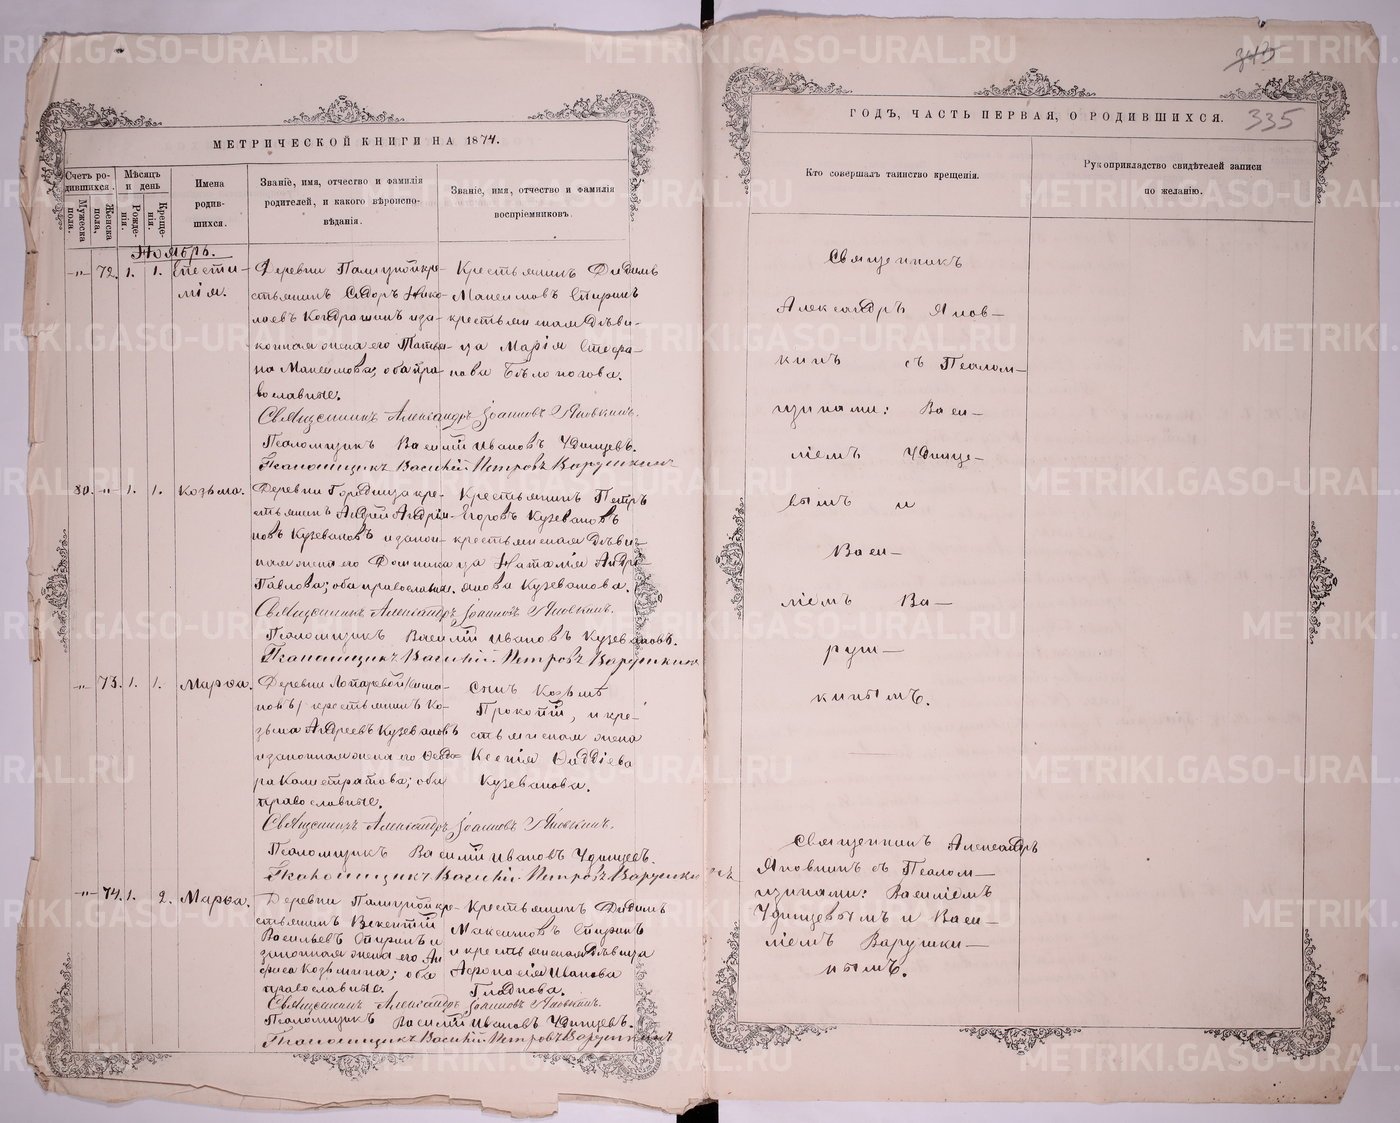 МЕТРИЧЕСКОЙ КНИГИ НА 1874.
Счетъ родившихся.
Мѣсяцъ и день
Имена родившихся.
Званіе, имя, отчество и фамилія родителей, и какого вѣроисповѣданія.
Званіе, имя, отчество и фамилія воспріемниковъ.
Мужеска пола.
Женска пола.
Рожденія.
Крещенія.
Ноябрь.
-"- 72. 1. 1.
Деревни крестьянинъ Сидоръ Николаевъ Кондрашинъ и законная жена его Татьяна Максимова; оба православные.
Крестьянинъ Дидимъ Максимовъ Спиринъ крестьянская дѣвица Марія Стефанова Бѣлоногова.
Священникъ Александръ Іоанновъ Яновкинъ.
Псаломщикъ Василій Ивановъ Удинцевъ.
Псаломщикъ Василій Петровъ Варушкинъ
80. -"- 1. 1. Козьма.
Деревни крестьянинъ Андрей Кузевановъ и законная жена его Павлова; оба православные.
Крестьянинъ Петръ Егоровъ Кузевановъ крестьянская дѣвица Наталія Андреянова Кузеванова.
Священникъ Александръ Іоанновъ Яновкинъ.
Псаломщикъ Василій Ивановъ
Псаломщикъ Василій Петровъ Варушкинъ
-"- 73. 1. 1. Марѳа.
Деревни крестьянинъ Козьма Андреевъ Кузевановъ и законная жена его Ѳедора Калистратова; оба православные.
Сынъ Козьмы Прокопій, и крестьянская жена Ксенія Ѳаддѣева Кузеванова.
Священникъ Александръ Іоанновъ Яновкинъ.
Псаломщикъ Василій Ивановъ Удинцевъ.
Псаломщикъ Василій Петровъ Варушкинъ
-"- 74. 1. 2. Марѳа.
Деревни крестьянинъ Васильевъ Спиринъ и законная жена его Анфиса Козьмина; оба православные.
Крестьянинъ Дидимъ Максимовъ Спиринъ и крестьянская дѣвица Афонасія Иванова Гладкова.
Священникъ Александръ Іоанновъ Яновкинъ.
Псаломщикъ Василій Ивановъ Удинцевъ.
Псаломщикъ Василій Петровъ Варушкинъ
345
335
ГОДЪ, ЧАСТЬ ПЕРВАЯ, О РОДИВШИХСЯ.
Кто совершалъ таинство крещенія.
Рукоприкладство свидѣтелей записи
по желанію.
Священникъ
Александръ Янов-
кинъ съ Псалом-
щиками: Васи-
ліемъ Удинце-
вымъ и
Васи-
ліемъ Ва-
руш-
кинымъ.
Священникъ Александръ
Яновкинъ съ Псалом-
щиками: Василіемъ
Удинцевымъ и Васи-
ліемъ Варушки-
нымъ.
METRIKI.GASO-URAL.RU